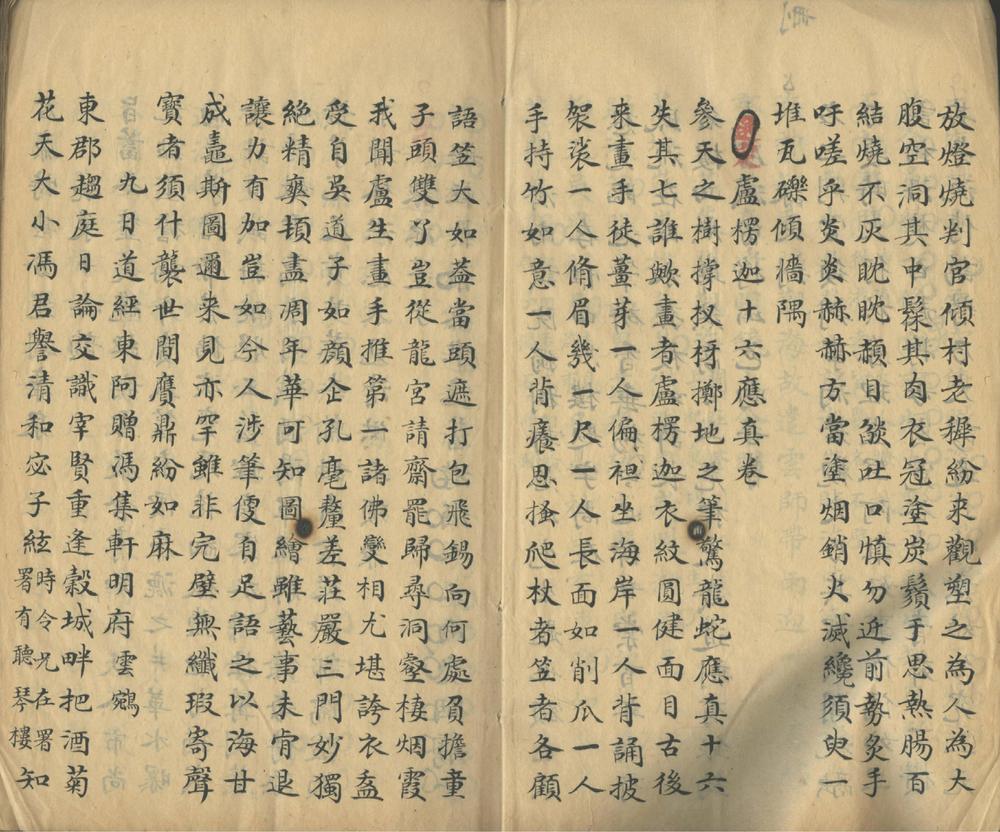 放燈燒判官傾村老稺紛来觀塑之為人為大
腹空洞其中髹其肉衣冠塗炭鬚于思熱腸百
結燒不灰眈眈頳目燄吐口慎勿近前勢炙手
吁嗟乎炎炎赫赫方當塗烟銷火滅纔須臾一
堆瓦礫傾牆隅
盧楞迦十六應真卷
參天之樹撐杈枒擲地之筆驚龍蛇應真十六
失其七誰歟畫者盧楞迦衣紋圓健面目古後
來畫手徒薑芽一人偏袒坐海岸一人背誦披
袈裟一人脩眉幾一尺一人長面如削瓜一人
手持竹如意一人背癢思搔爬杖者笠者各顧
語笠大如葢當頭遮打包飛錫向何處負擔童
子頭雙丫豈從龍宮請齋罷歸尋洞壑棲烟霞
我聞盧生畫手推第一諸佛變相尤堪誇衣盋
受自吳道子如顔企孔毫釐差莊嚴三門妙獨
絶精爽頓盡凋年華可知圖繪雖藝事未肯退
讓力有加豈如今人涉筆便自足語之以海甘
成蠧斯圖邇来見亦罕雖非完壁無纖瑕寄聲
寳者須什襲世間贋鼎紛如麻
九日道經東阿贈馮集軒明府雲鵷
東郡趨庭日論交識宰賢重逢穀城畔把酒菊
花天大小馮君譽清和宓子絃署有聽琴樓時令兄在署知